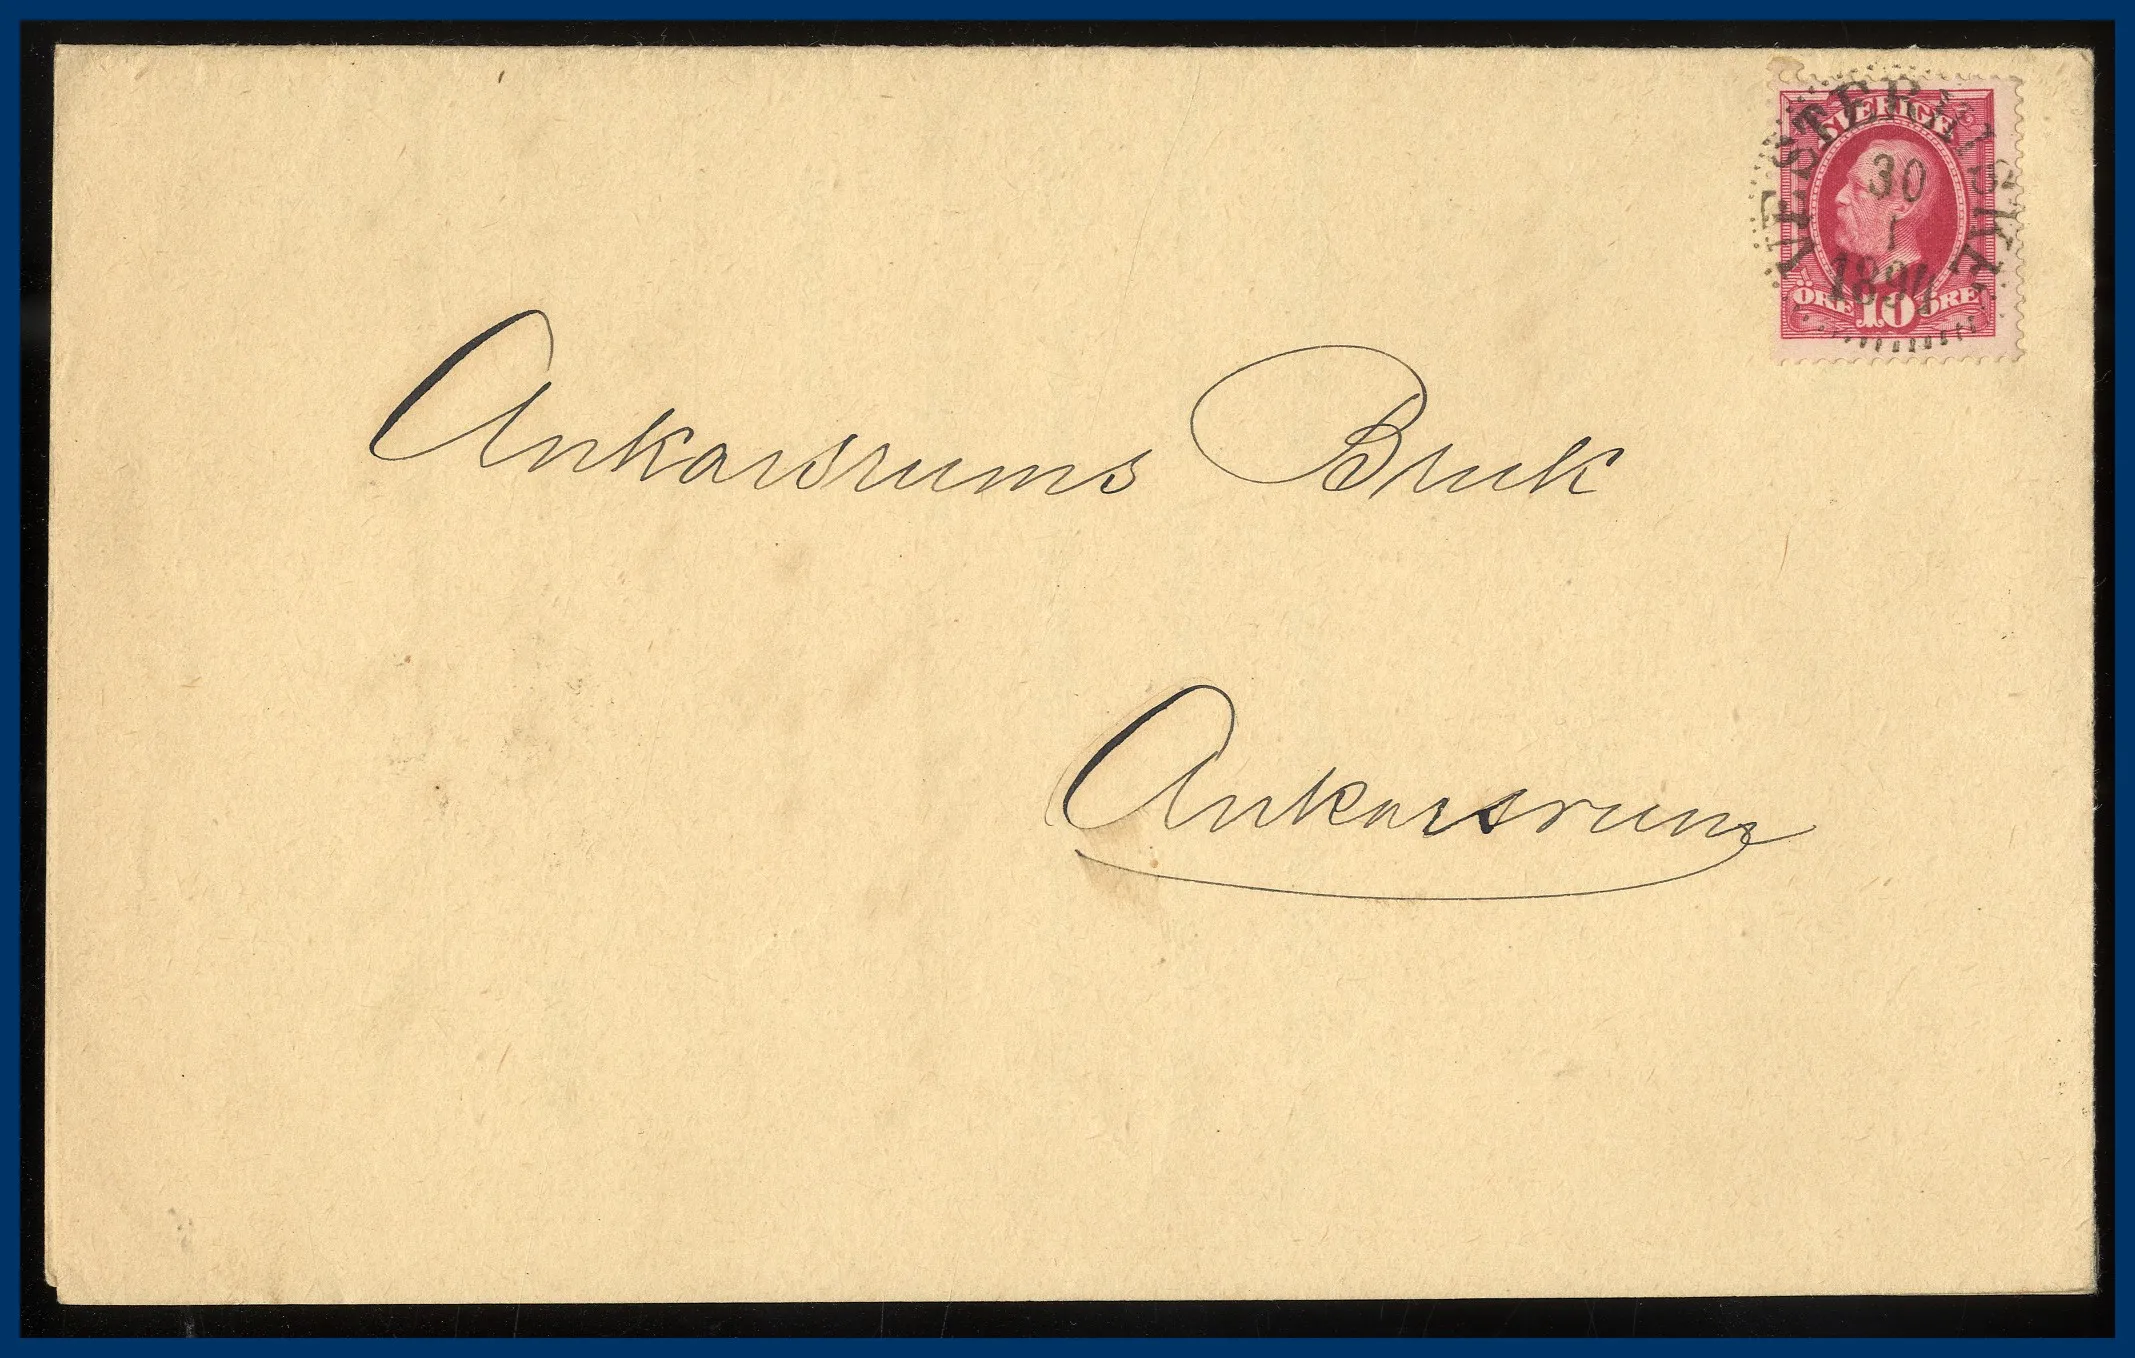 SVERIGE
30
1
ÖRE 10 ÖRE
Ankarsrums Bruk
Ankarsrum